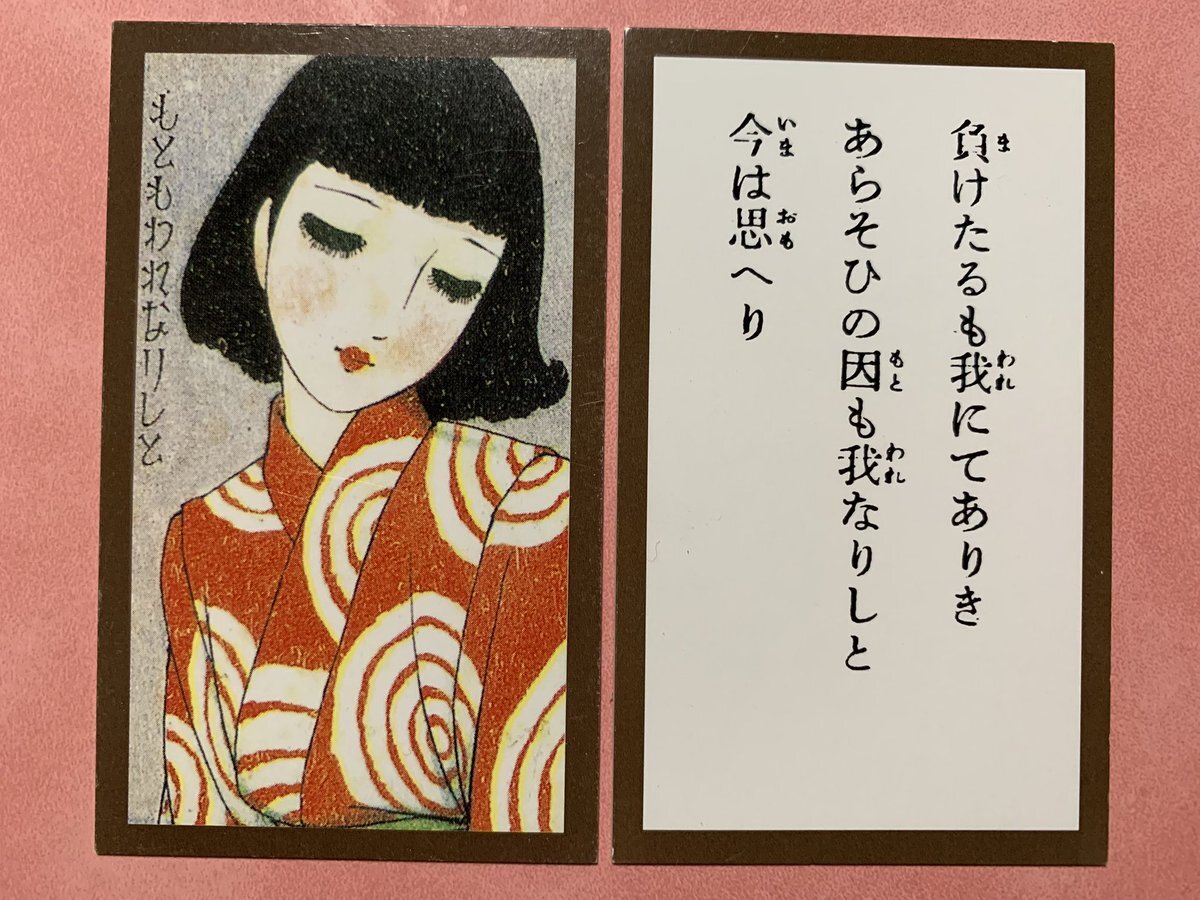 もともわれなりしと
負けたるも我にてありき
あらそひの因も我なりしと
今は思へり